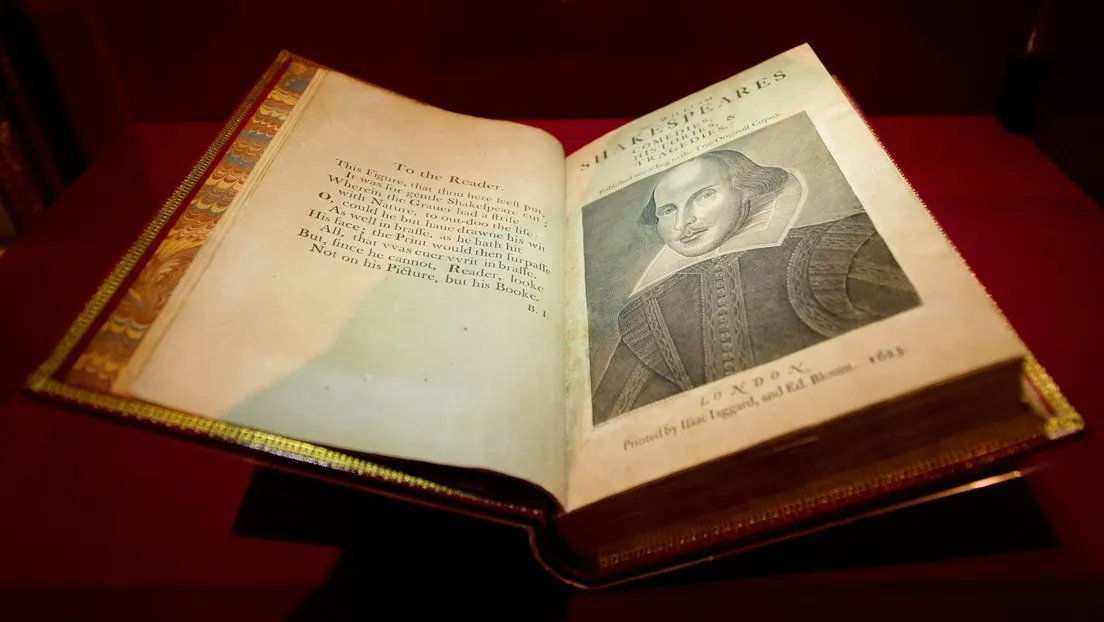 To the Reader.
This Figure, that thou here seeſt put,
It was for gentle Shakeſpeare cut;
Wherein the Grauer had a ſtrife
with Nature, to out-doo the life:
O, could he but haue drawne his wit
As well in braſſe, as he hath hit
His face; the Print would then ſurpaſſe
All, that vvas euer vvrit in braſſe.
But, ſince he cannot, Reader, looke
Not on his Picture, but his Booke.
B. I.
Mr. WILLIAM
SHAKESPEARES
COMEDIES,
HISTORIES, &
TRAGEDIES.
Publiſhed according to the True Originall Copies.
LONDON
Printed by Iſaac Iaggard, and Ed. Blount. 1623.